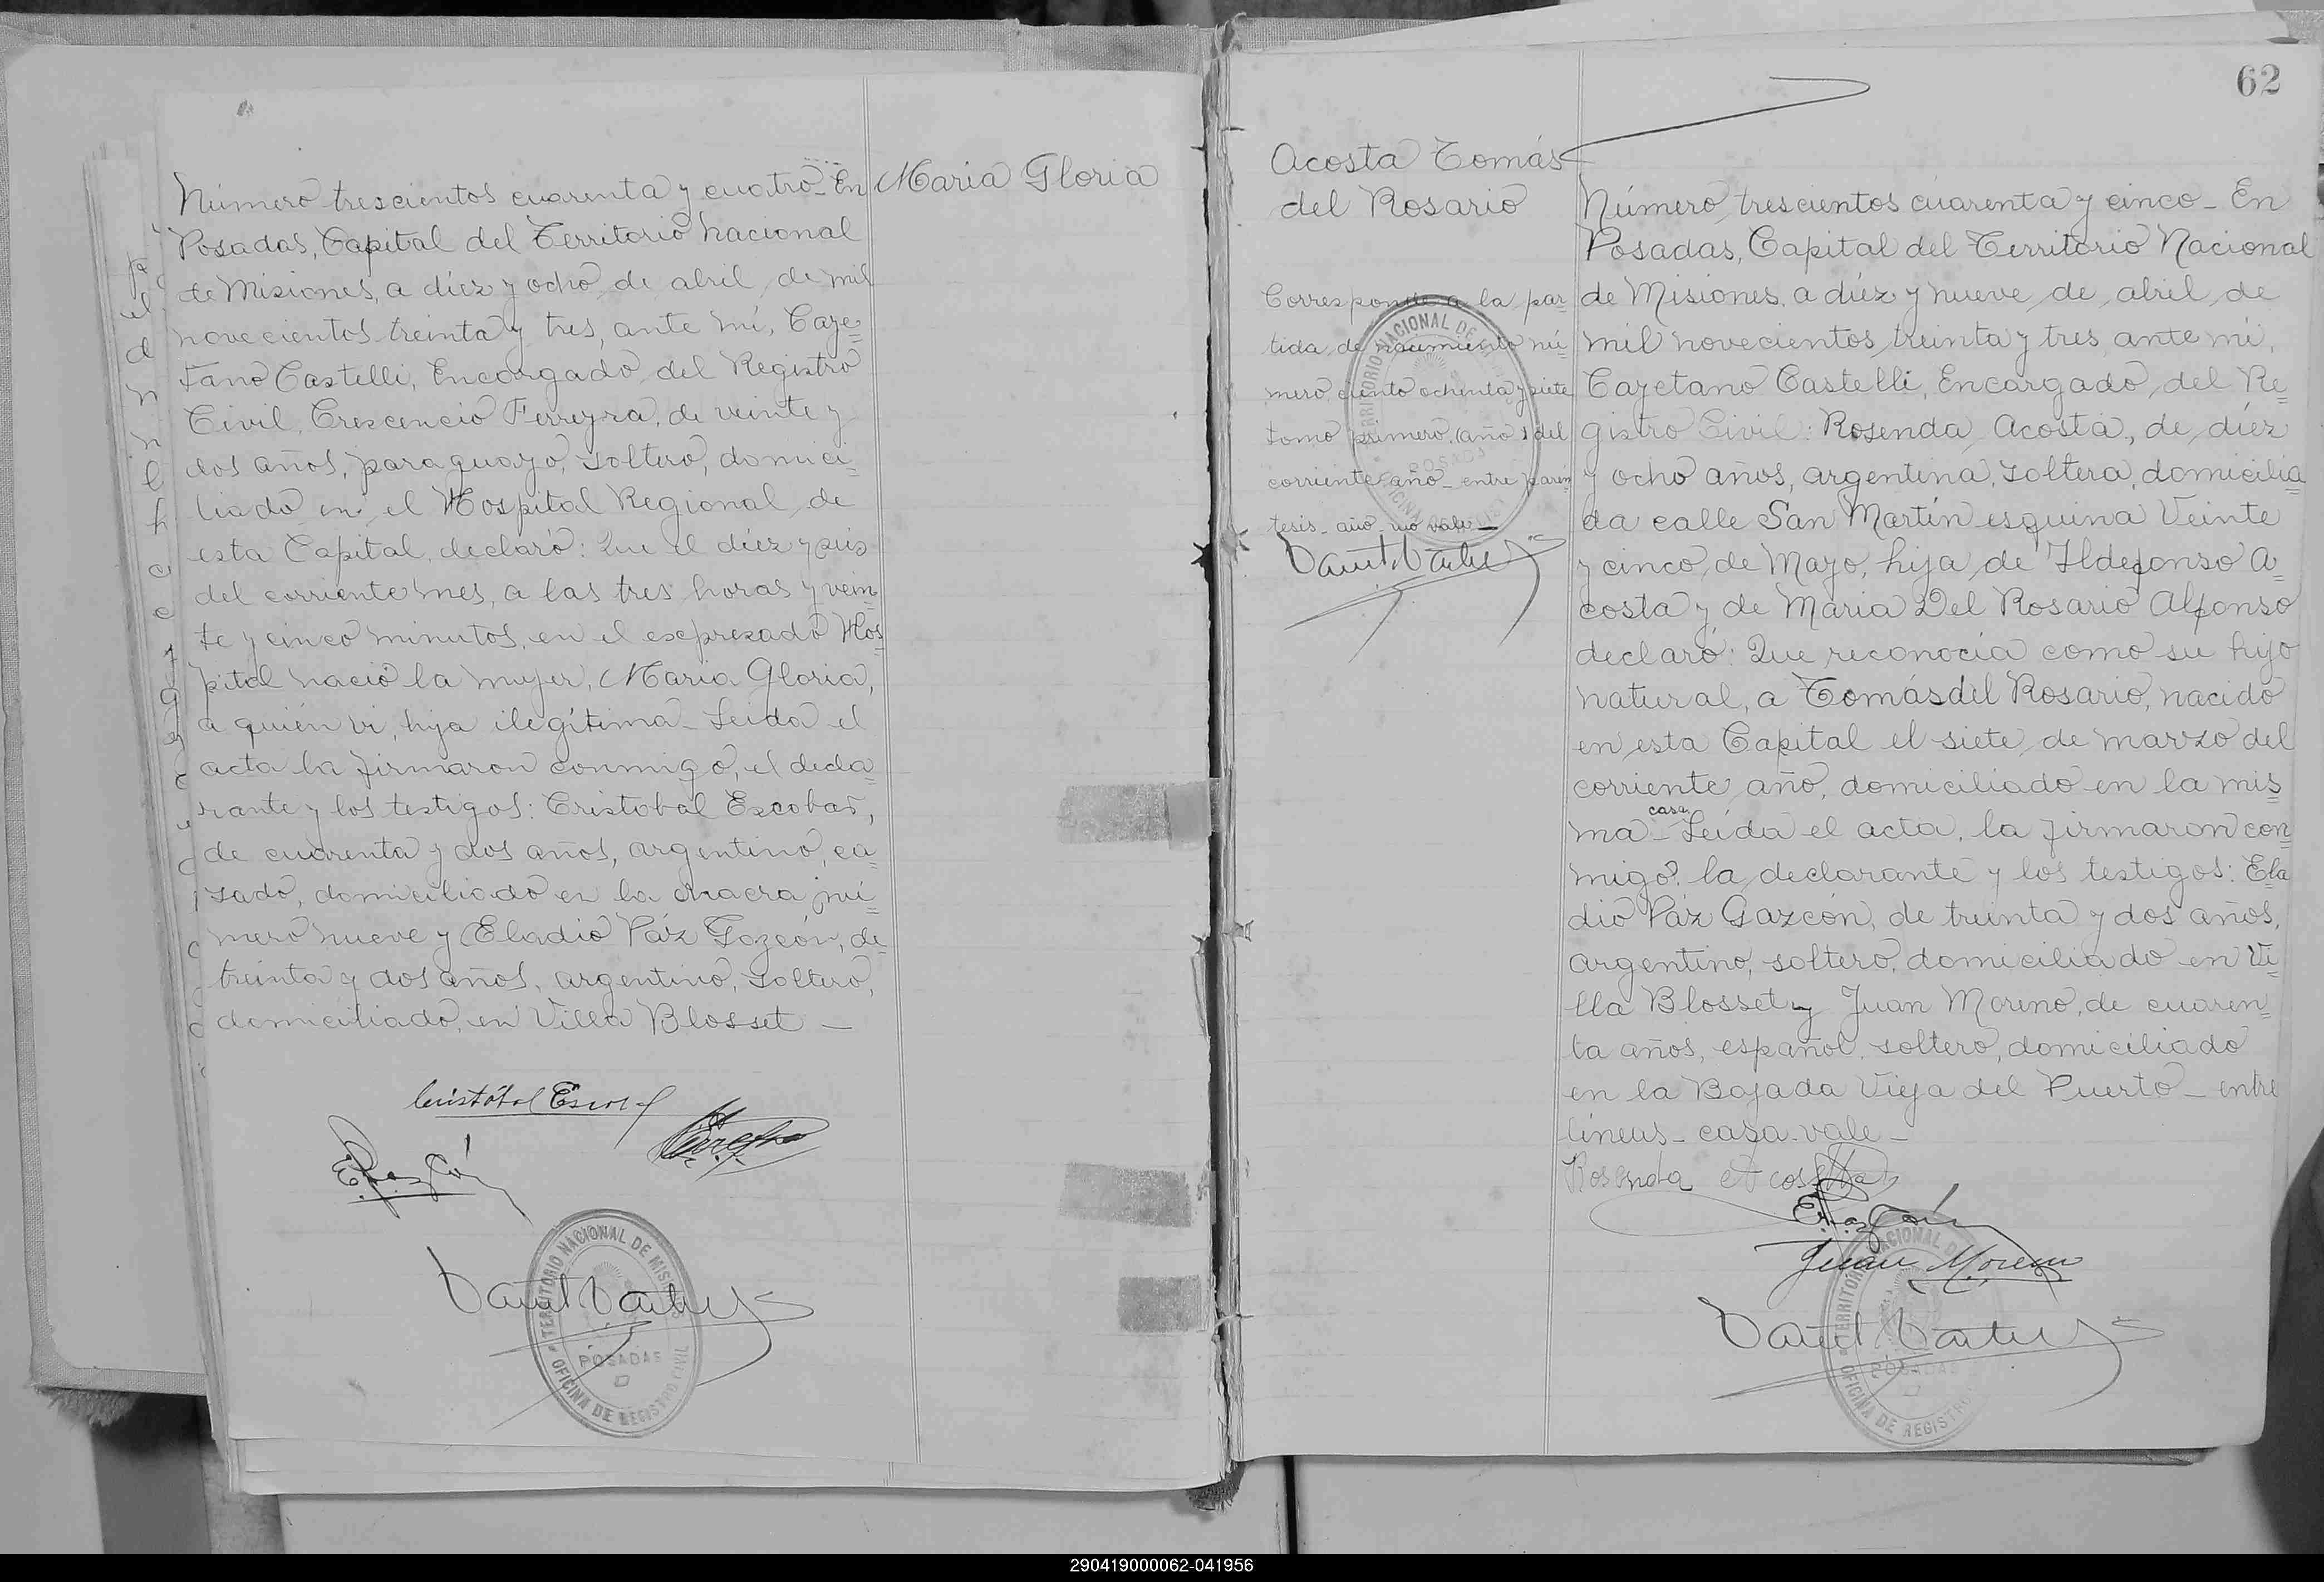 Número trescientos cuarenta y cuatro_ En
Posadas, Capital del Territorio Nacional
de Misiones, a diez y ocho de abril de mil
novecientos treinta y tres, ante mí, Caye=
tano Castelli, Encargado del Registro
Civil, Crescencio Ferreyra, de veinte y
dos años, paraguayo, soltero, domici=
liado en el Hospital Regional de
esta Capital, declaró: Que el diez y seis
del corriente mes, a las tres horas y vein=
te y cinco minutos, en el expresado Hos=
pital nació la mujer, Maria Gloria,
a quién vi, hija ilegítima_ Leida el
acta la firmaron conmigo, el decla=
rante y los testigos: Cristobal Escobar,
de cuarenta y dos años, argentino, ca=
sado, domiciliado en la chacra nú=
mero nueve y Eladio Páz Gazcón, de
treinta y dos años, argentino, soltero,
domiciliado, en Villa Blosset_
Maria Gloria
Cristóbal
TERRITORIO NACIONAL DE MISIONES
POSADAS
OFICINA DE REGISTRO CIVIL
62
Acosta Tomás
del Rosario
Corresponde a la par=
tida de nacimiento nú=
mero ciento ochenta y siete
tomo primero (año) del
corriente año_ entre parén
tesis_ año_ no vale_
Número trescientos cuarenta y cinco_ En
Posadas, Capital del Territorio Nacional
de Misiones, a diez y nueve de abril de
mil novecientos treinta y tres, ante mí,
Cayetano Castelli, Encargado del Re=
gistro Civil: Rosenda Acosta, de diez
y ocho años, argentina, soltera, domicilia
da calle San Martín esquina Veinte
y cinco de Mayo, hija de Ildefonso A=
costa y de Maria Del Rosario Alfonso
declaró: Que reconocía como su hijo
natural, a Tomás del Rosario, nacido
en esta Capital el siete de marzo del
corriente año, domiciliado en la mis
casa
ma_ Leída el acta, la firmaron con
migo, la declarante y los testigos: Ela
dio Páz Gazcón, de treinta y dos años,
argentino, soltero, domiciliado en Vi=
lla Blosset y Juan Moreno, de cuaren=
ta años, español, soltero, domiciliado
en la Bajada Vieja del Puerto_ entre
líneas_ casa_ vale_
Rosenda Acosta
Juan Moreno
TERRITORIO NACIONAL DE
POSADAS
OFICINA DE REGISTRO
290419000062-041956